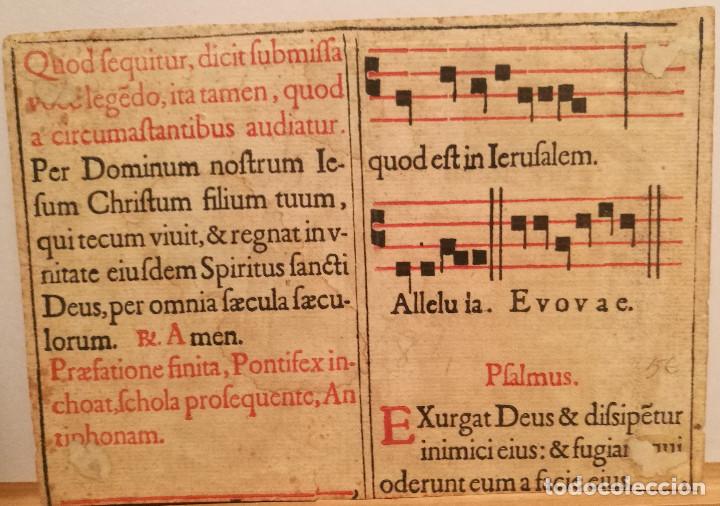 Quod sequitur, dicit submissa
voce legẽdo, ita tamen, quod
a circumastantibus audiatur.
Per Dominum nostrum Ie-
sum Christum filium tuum,
qui tecum viuit, & regnat in v-
nitate eiusdem Spiritus sancti
Deus, per omnia sæcula sæcu-
lorum. ℟. Amen.
Præfatione finita, Pontifex in-
choat, schola prosequente, An
tiphonam.
quod est in Ierusalem.
Allelu ia. E v o v a e.
56
Psalmus.
EXurgat Deus & dissipẽtur
inimici eius: & fugian qui
oderunt eum a facie eius.
todocoleccion